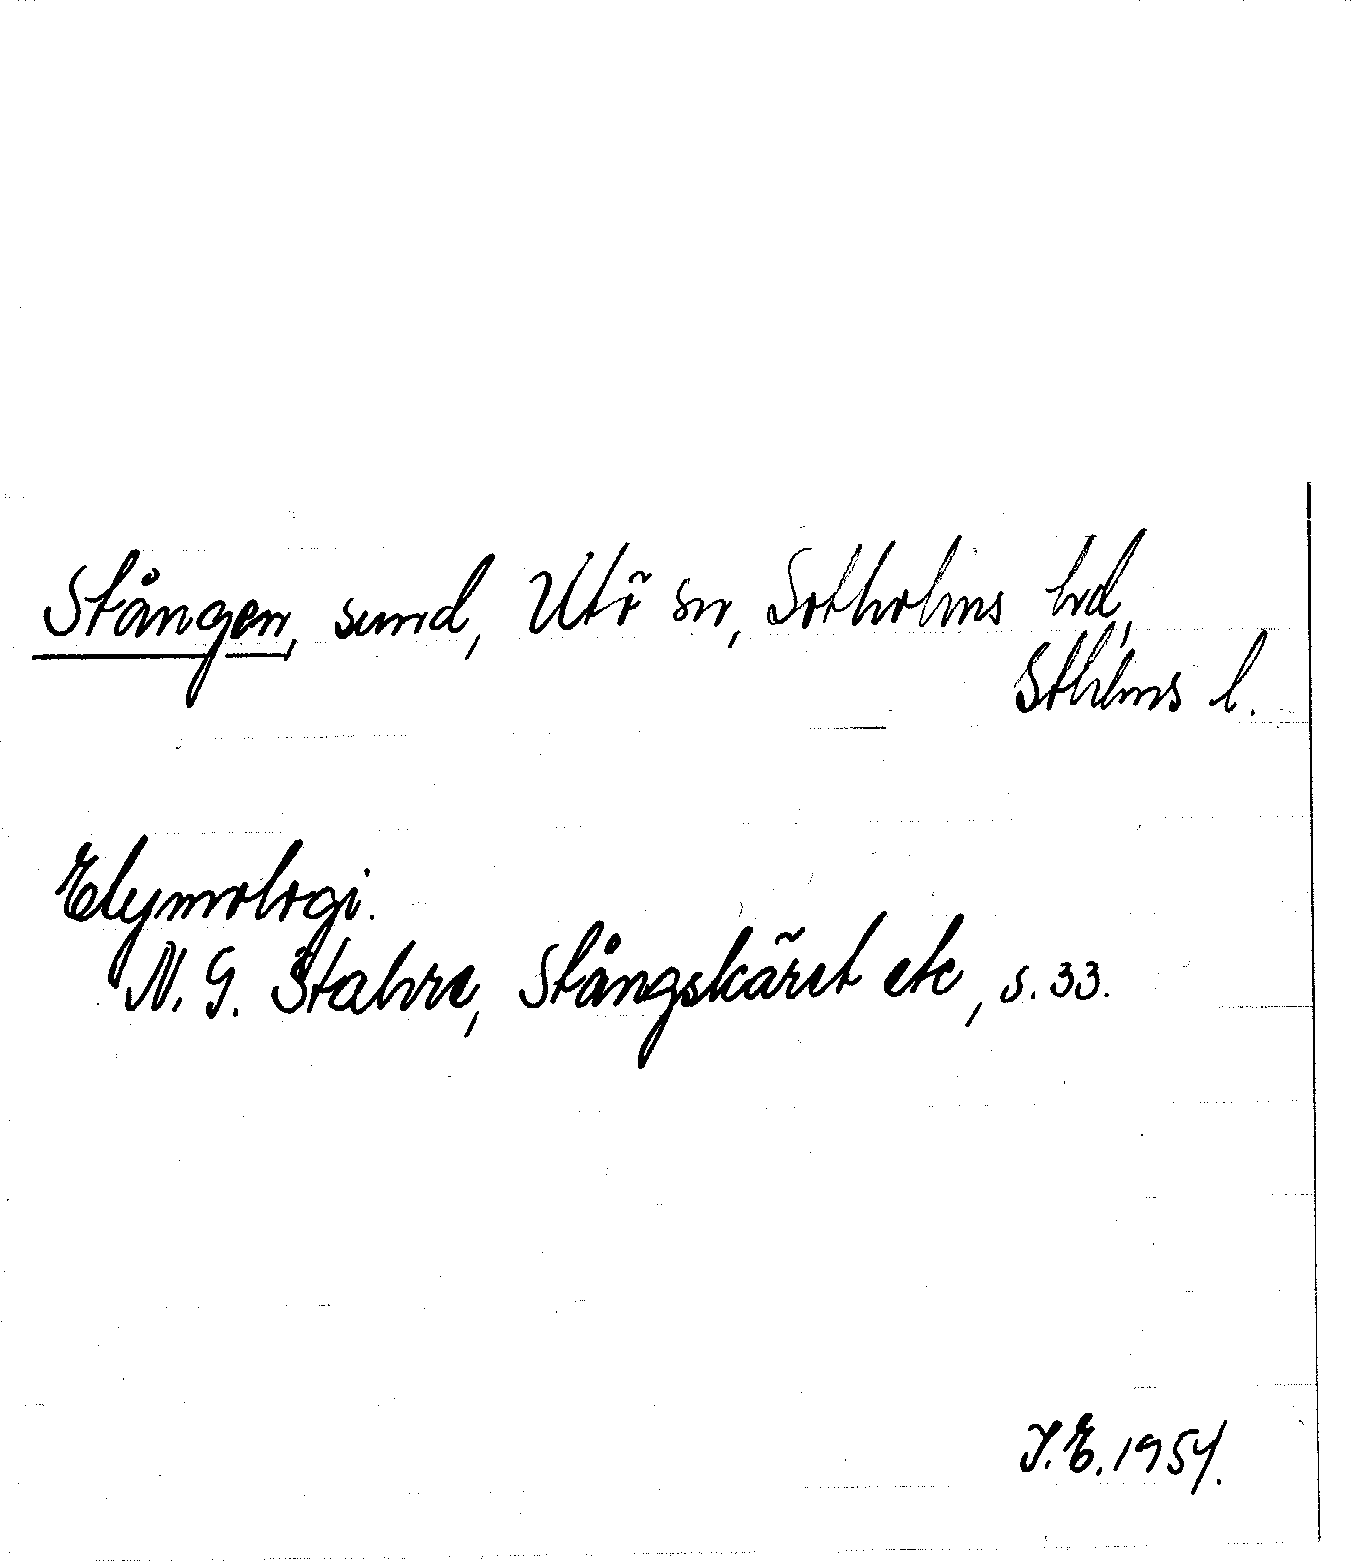 Stången, sund, Utö sn, Sotholms hd,
Sthlms l.
Etymologi.
N. G. Stahre, Stångskäret etc, s. 33.
I. E. 1954.